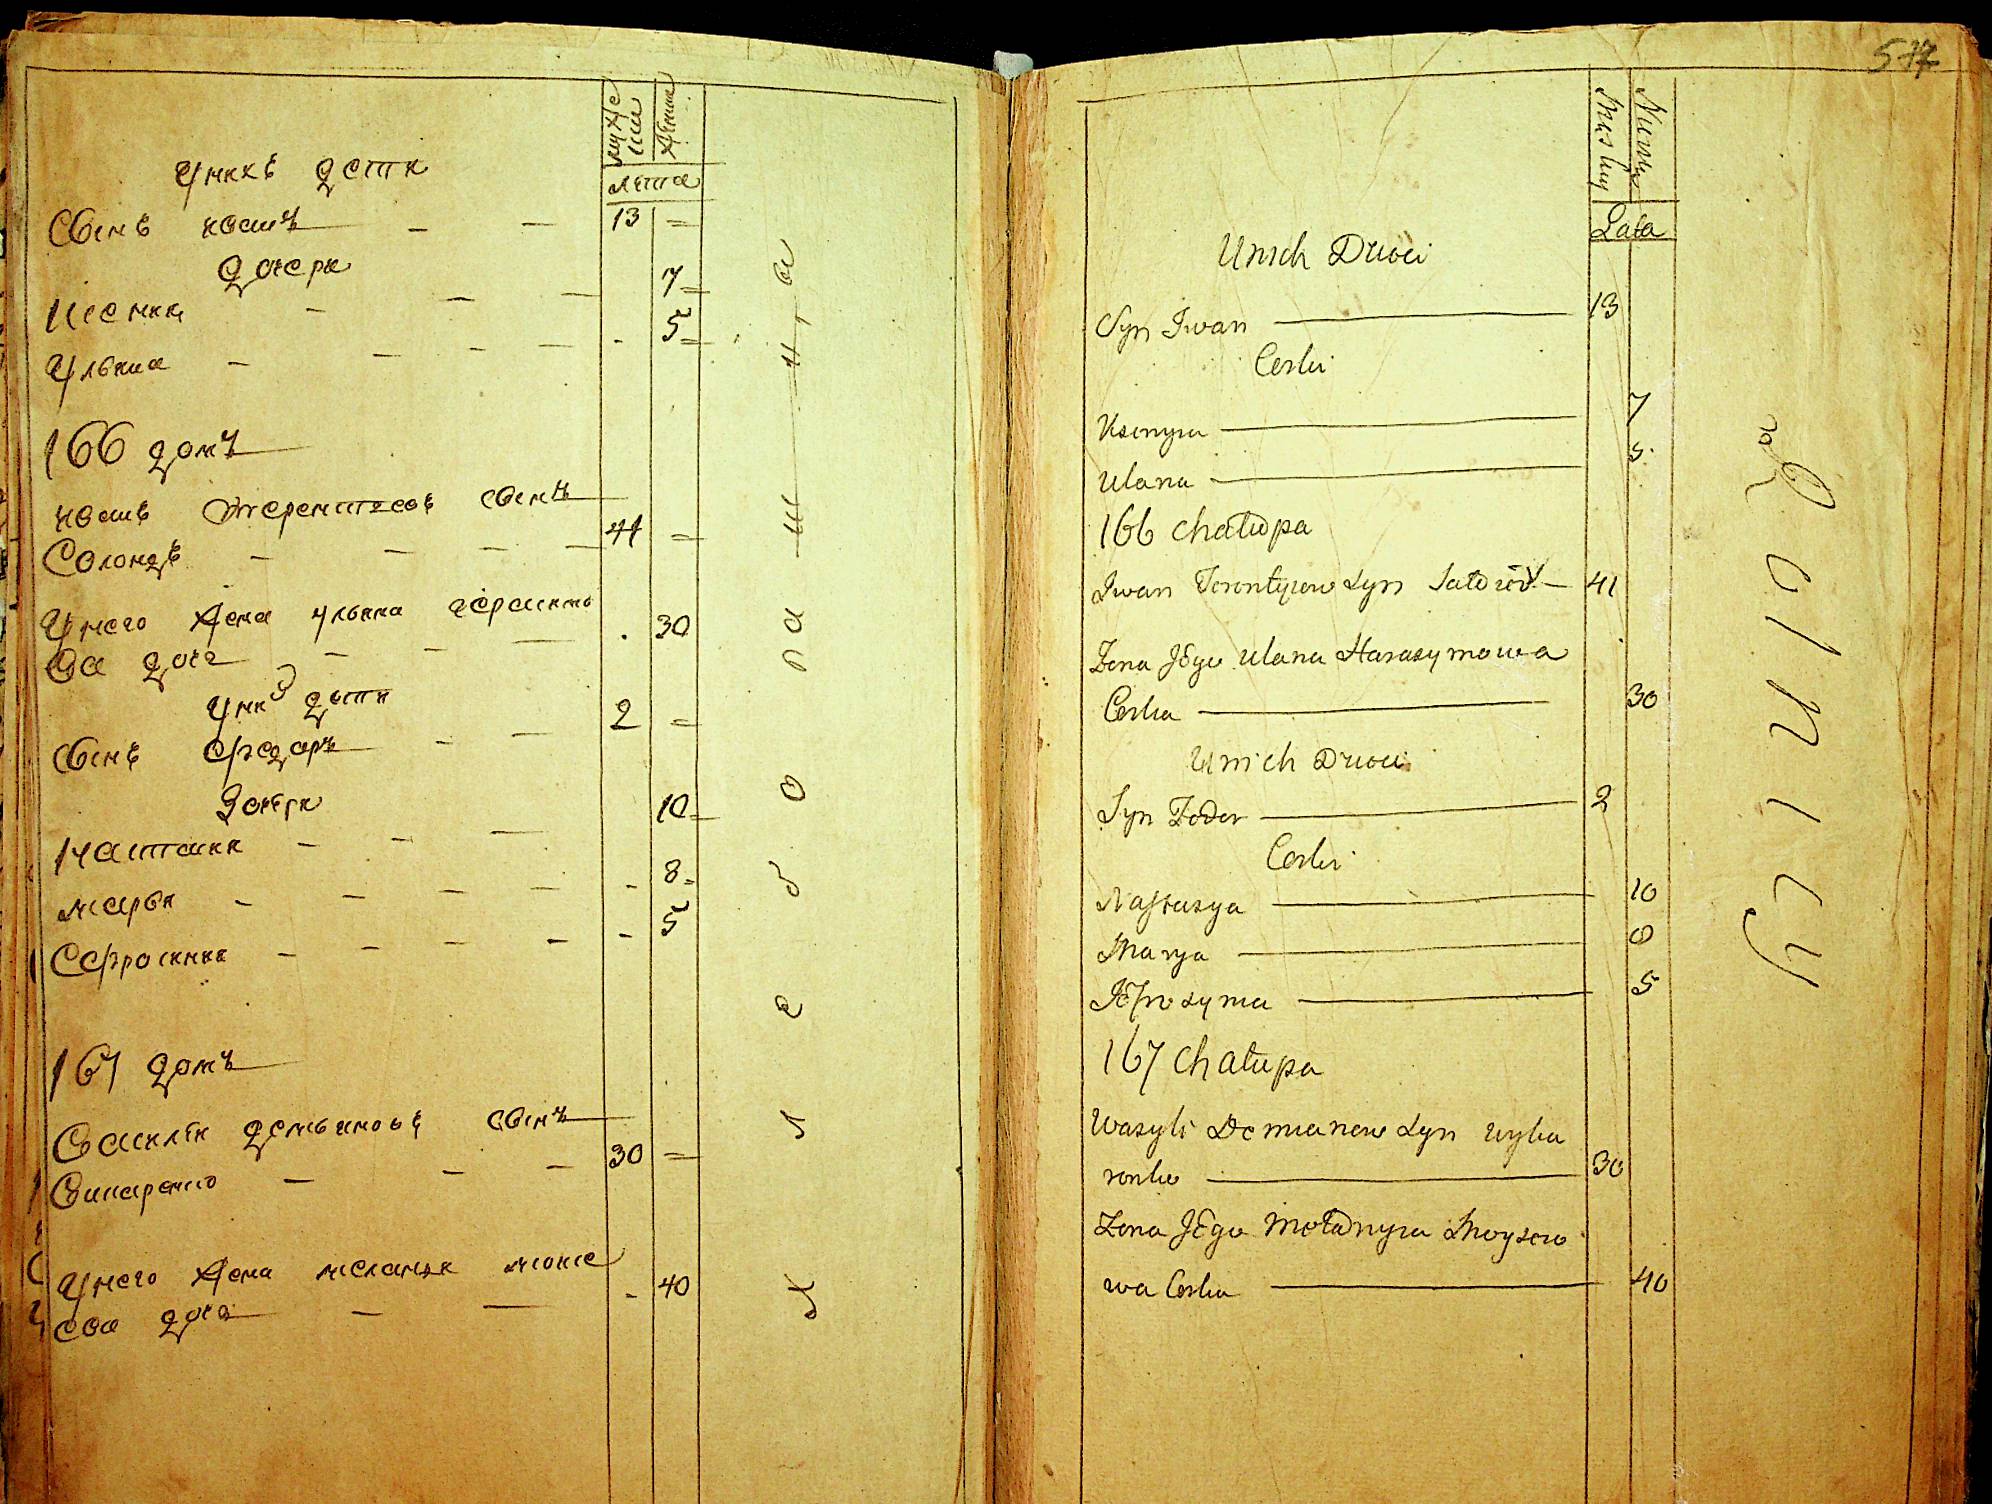 мужс
ски
женски
лета
У них дети
Сынъ иванъ 13
дочери
Ксения 7
Ульяна 5
166 домъ
иванъ терентьевъ сынъ
Солондъ 41
У него жена ульяна гарасимо
ва дочь 30
У них дети
сынъ федоръ 2
дочери
Настасия 10
марья 8
Ефросиния 5
167 домъ
Василей демьяновъ сынъ
Винаренко 30
У него жена меланья моисе
ева дочь 40
хлебопашца
577
Męskiey
Lata
Unich Dzieci
Syn Iwan 13
Corki
Ksenyia 7
Ulana 5
166 Chałupa
Iwan Terentyiew Syn 41
Żona Jego Ulana Harasymowa
Corka 30
Unich Dzieci
Syn Fedor 2
Corki
Nastasya 10
Marya 8
Jefrosyma 5
167 Chałupa
Wasyli Demianow Syn Wyha
renko 30
Żona Jego Mełanyia Moysew
wa Corka 40
Rolnicy